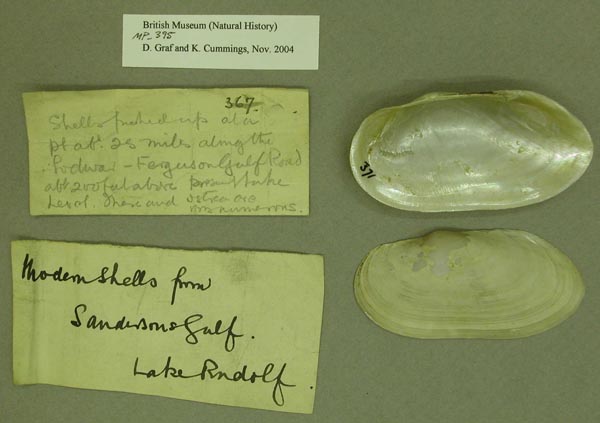 British Museum (Natural History)
MP-395
D. Graf and K. Cummings, Nov. 2004
367.
Shells picked up at a
pt abt. 25 miles along the
Lodwar - Ferguson Gulf Road
abt 200 feet above present Lake
Level. These and ostrea are
numerous.
371
Modern Shells from
Sandersons Gulf.
Lake Rudolf.